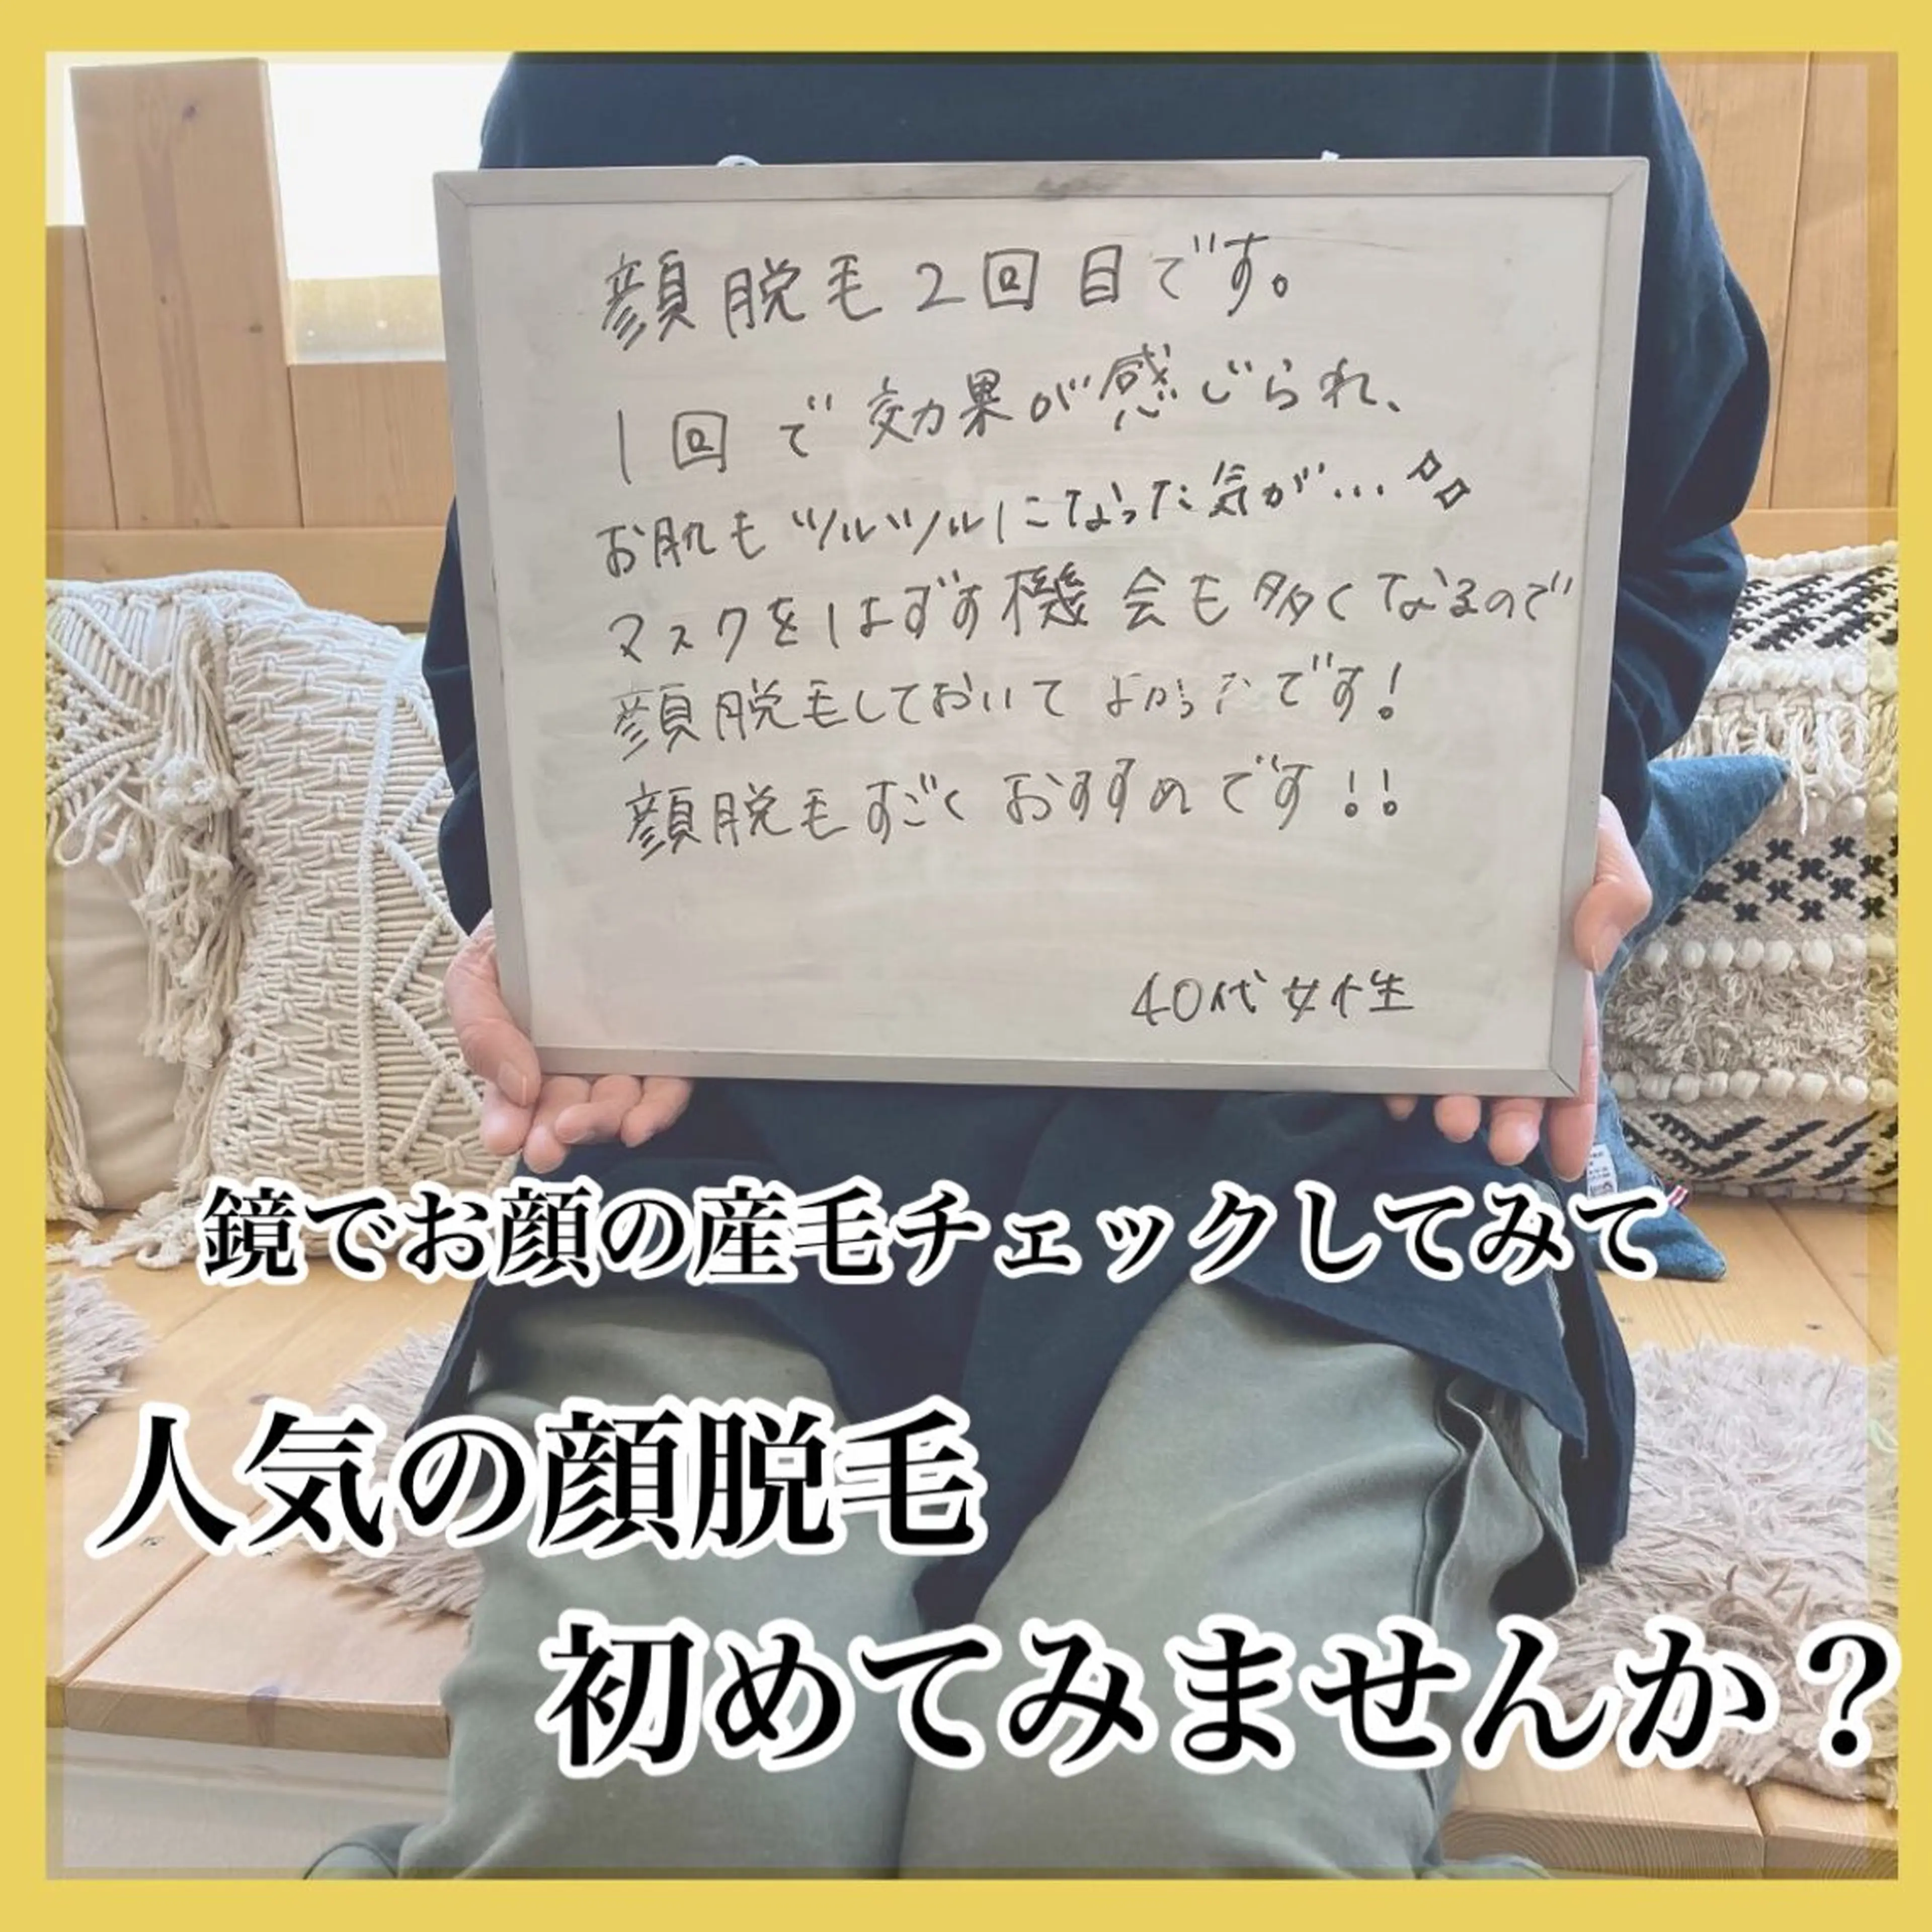 顔脱毛2回目です。
1回で効果が感じられ、
お肌もツルツルになった気が…
マスクをはずす機会も多くなるので
顔脱毛しておいてよかったです!
顔脱毛すごくおすすめです!!
40代女性
鏡でお顔の産毛チェックしてみて
人気の顔脱毛
初めてみませんか?